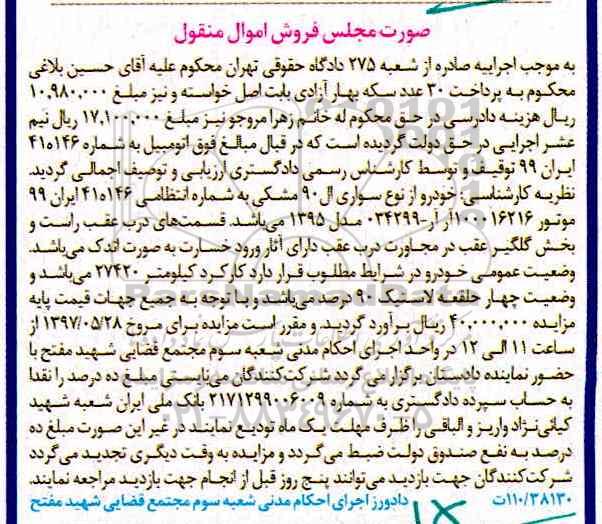 صورت مجلس فروش اموال منقول
به موجب اجراییه صادره از شعبه ۲۷۵ دادگاه حقوقی تهران محکوم علیه آقای حسین بلاغی
محکوم به پرداخت ۳۰ عدد سکه بهار آزادی بابت اصل خواسته و نیز مبلغ ۱۰,۹۸۰,۰۰۰
ریال هزینه دادرسی در حق محکوم له خانم زهرا مروجو نیز مبلغ ۱۷,۱۰۰,۰۰۰ ریال نیم
عشر اجرایی در حق دولت گردیده است که در قبال مبالغ فوق اتومبیل به شماره ۱۴۶ه۴۱
ایران ۹۹ توقیف و توسط کارشناس رسمی دادگستری ارزیابی و توصیف اجمالی گردید.
نظریه کارشناسی: خودرو از نوع سواری ال۹۰ مشکی به شماره انتظامی ۱۴۶ه۴۱ ایران ۹۹
موتور ۱۰۰۰۱۶۲۱۶آر آر-۰۳۴۲۹۹ مدل ۱۳۹۵ می‌باشد. قسمت‌های درب عقب راست و
بخش گلگیر عقب در مجاورت درب عقب دارای آثار ورود خسارت به صورت اندک می‌باشد.
وضعیت عمومی خودرو در شرایط مطلوب قرار دارد کارکرد کیلومتر ۲۷۴۲۰ می‌باشد و
وضعیت چهار حلقعه لاستیک ۹۰ درصد می‌باشد و با توجه به جمیع جهات قیمت پایه
مزایده ۴۰,۰۰۰,۰۰۰ ریال برآورد گردید. و مقرر است مزایده برای مروخ ۱۳۹۷/۰۵/۲۸ از
ساعت ۱۱ الی ۱۲ در واحد اجرای احکام مدنی شعبه سوم مجتمع قضایی شهید مفتح با
حضور نماینده دادستان برگزار می گردد شرکت‌کنندگان می‌بایستی مبلغ ده درصد را نقدا
به حساب سپرده دادگستری به شماره ۲۱۷۱۲۹۹۰۰۶۰۰۹ بانک ملی ایران شعبه شهید
کیائی‌نژاد واریز و الباقی را ظرف مهلت یک ماه تودیع نمایند در غیر این صورت مبلغ ده
درصد به نفع صندوق دولت ضبط می‌گردد و مزایده به وقت دیگری تجدید می‌گردد
شرکت‌کنندگان جهت بازدید می‌توانند پنج روز قبل از انجام جهت بازدید مراجعه نمایند.
۱۱۰/۳۸۱۳۰ت دادورز اجرای احکام مدنی شعبه سوم مجتمع قضایی شهید مفتح